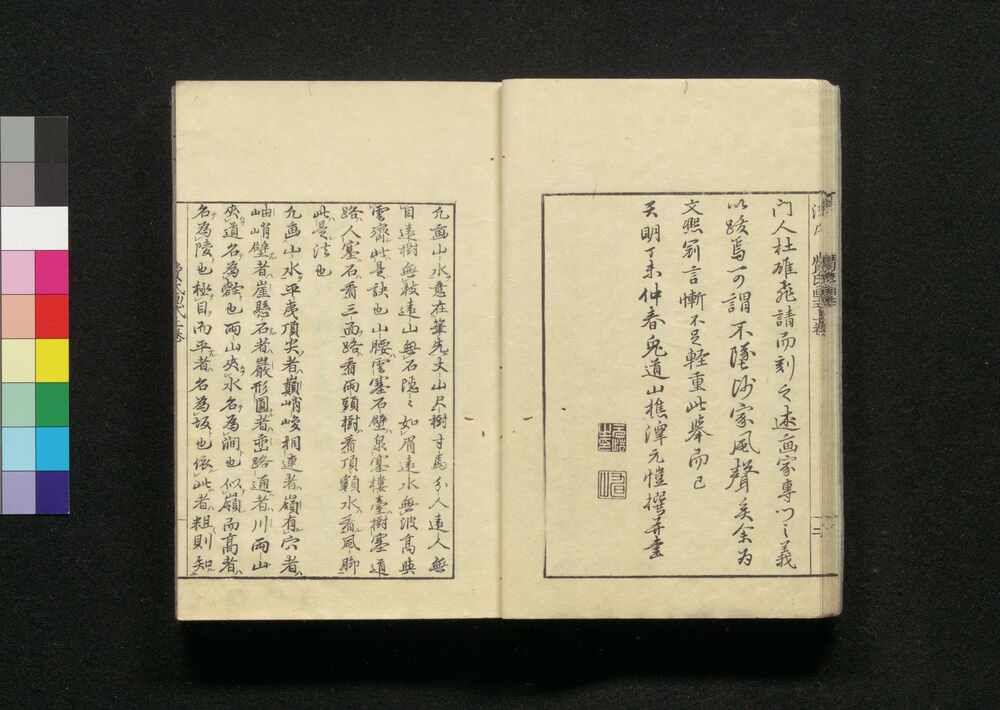 門人杜雄飛請而刻之述画家專門之義
以跋焉可謂不墜洂家風聲矣余為
文興劣言慚不足輕重此舉而已
天明丁未仲春兔道山樵潭元愷撰并書
凢画山水意在筆先丈山尺樹寸馬分人遠人無
目遠樹無枝遠山無石隠〻如眉遠水無波髙與
雲齊此是訣也山腰雲塞石壁泉塞樓臺樹塞道
路人塞石看三面路看兩頭樹看頂顙水看風脚
此是法也
凢画山水平夷頂尖者巔峭峻相連者嶺有穴者
岫峭壁者崖懸石者巖形圓者巒路通者川兩山
夾道名為壑也兩山夾水名為澗也似嶺而髙者
名為陵也極目而平者名為坂也依此者粗則知